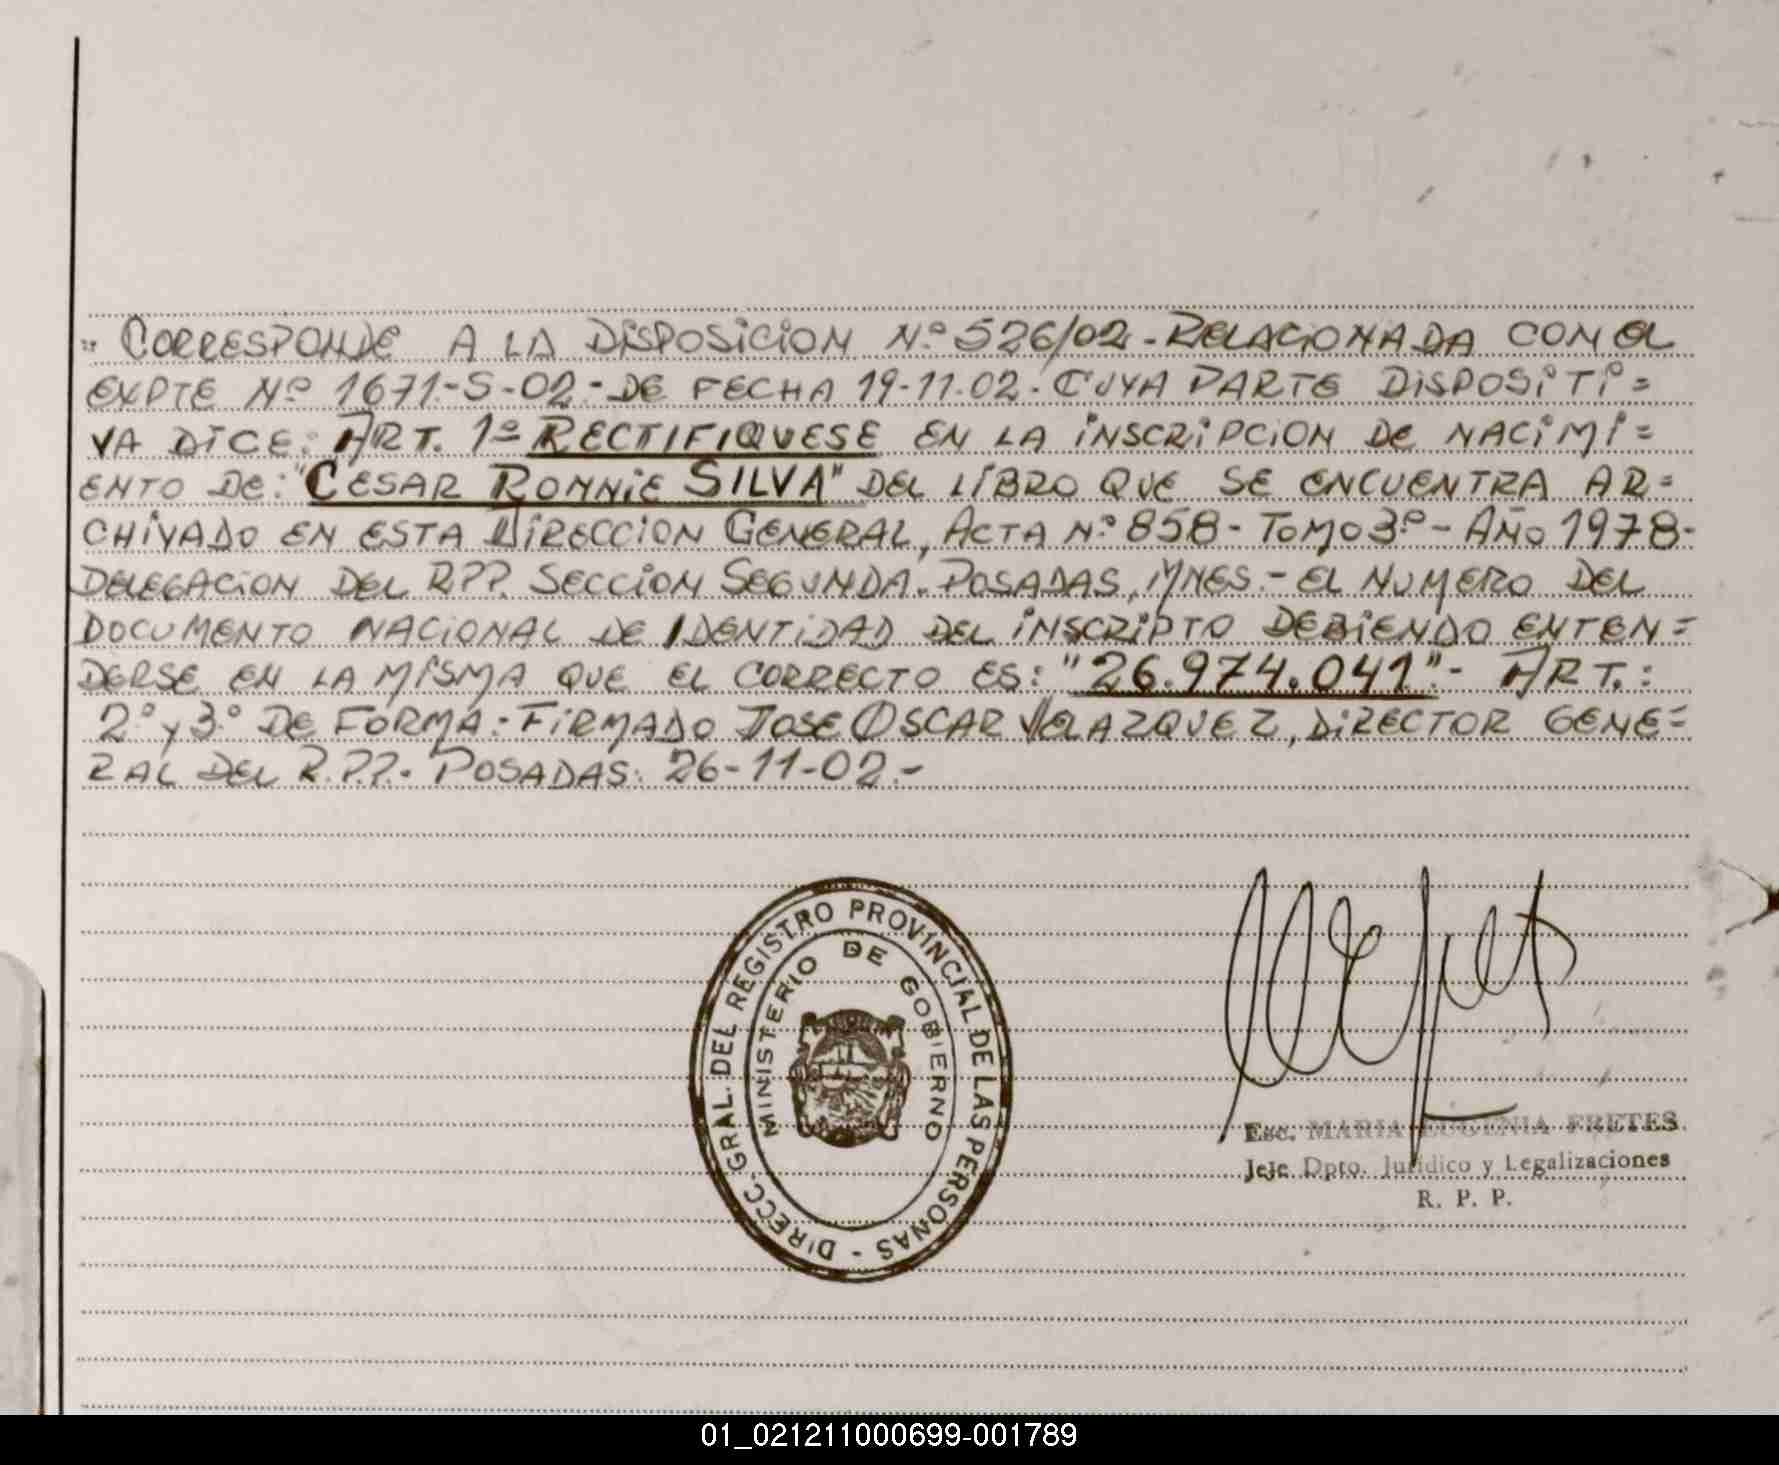 " CORRESPONDE A LA DISPOSICION Nº 526/02 - RELACIONADA CON EL
EXPTE Nº 1671-S-02 - DE FECHA 19-11-02 - CUYA PARTE DISPOSITI=
VA DICE: ART. 1º RECTIFIQUESE EN LA INSCRIPCION DE NACIMI=
ENTO DE: "CESAR RONNIE SILVA" DEL LIBRO QUE SE ENCUENTRA AR=
CHIVADO EN ESTA DIRECCION GENERAL, ACTA Nº 858 - TOMO 3º - AÑO 1978 -
DELEGACION DEL R.P.P. SECCION SEGUNDA - POSADAS, MNES. - EL NUMERO DEL
DOCUMENTO NACIONAL DE IDENTIDAD DEL INSCRIPTO DEBIENDO ENTEN=
DERSE EN LA MISMA QUE EL CORRECTO ES: "26.974.041" - ART.:
2º y 3º DE FORMA: FIRMADO JOSE OSCAR VELAZQUEZ, DIRECTOR GENE=
RAL DEL R.P.P. - POSADAS: 26-11-02.-
DIRECC. GRAL. DEL REGISTRO PROVINCIAL DE LAS PERSONAS -
MINISTERIO DE GOBIERNO
Esc. MARIA EUGENIA FRETES
Jefe Dpto. Jurídico y Legalizaciones
R. P. P.
01_021211000699-001789